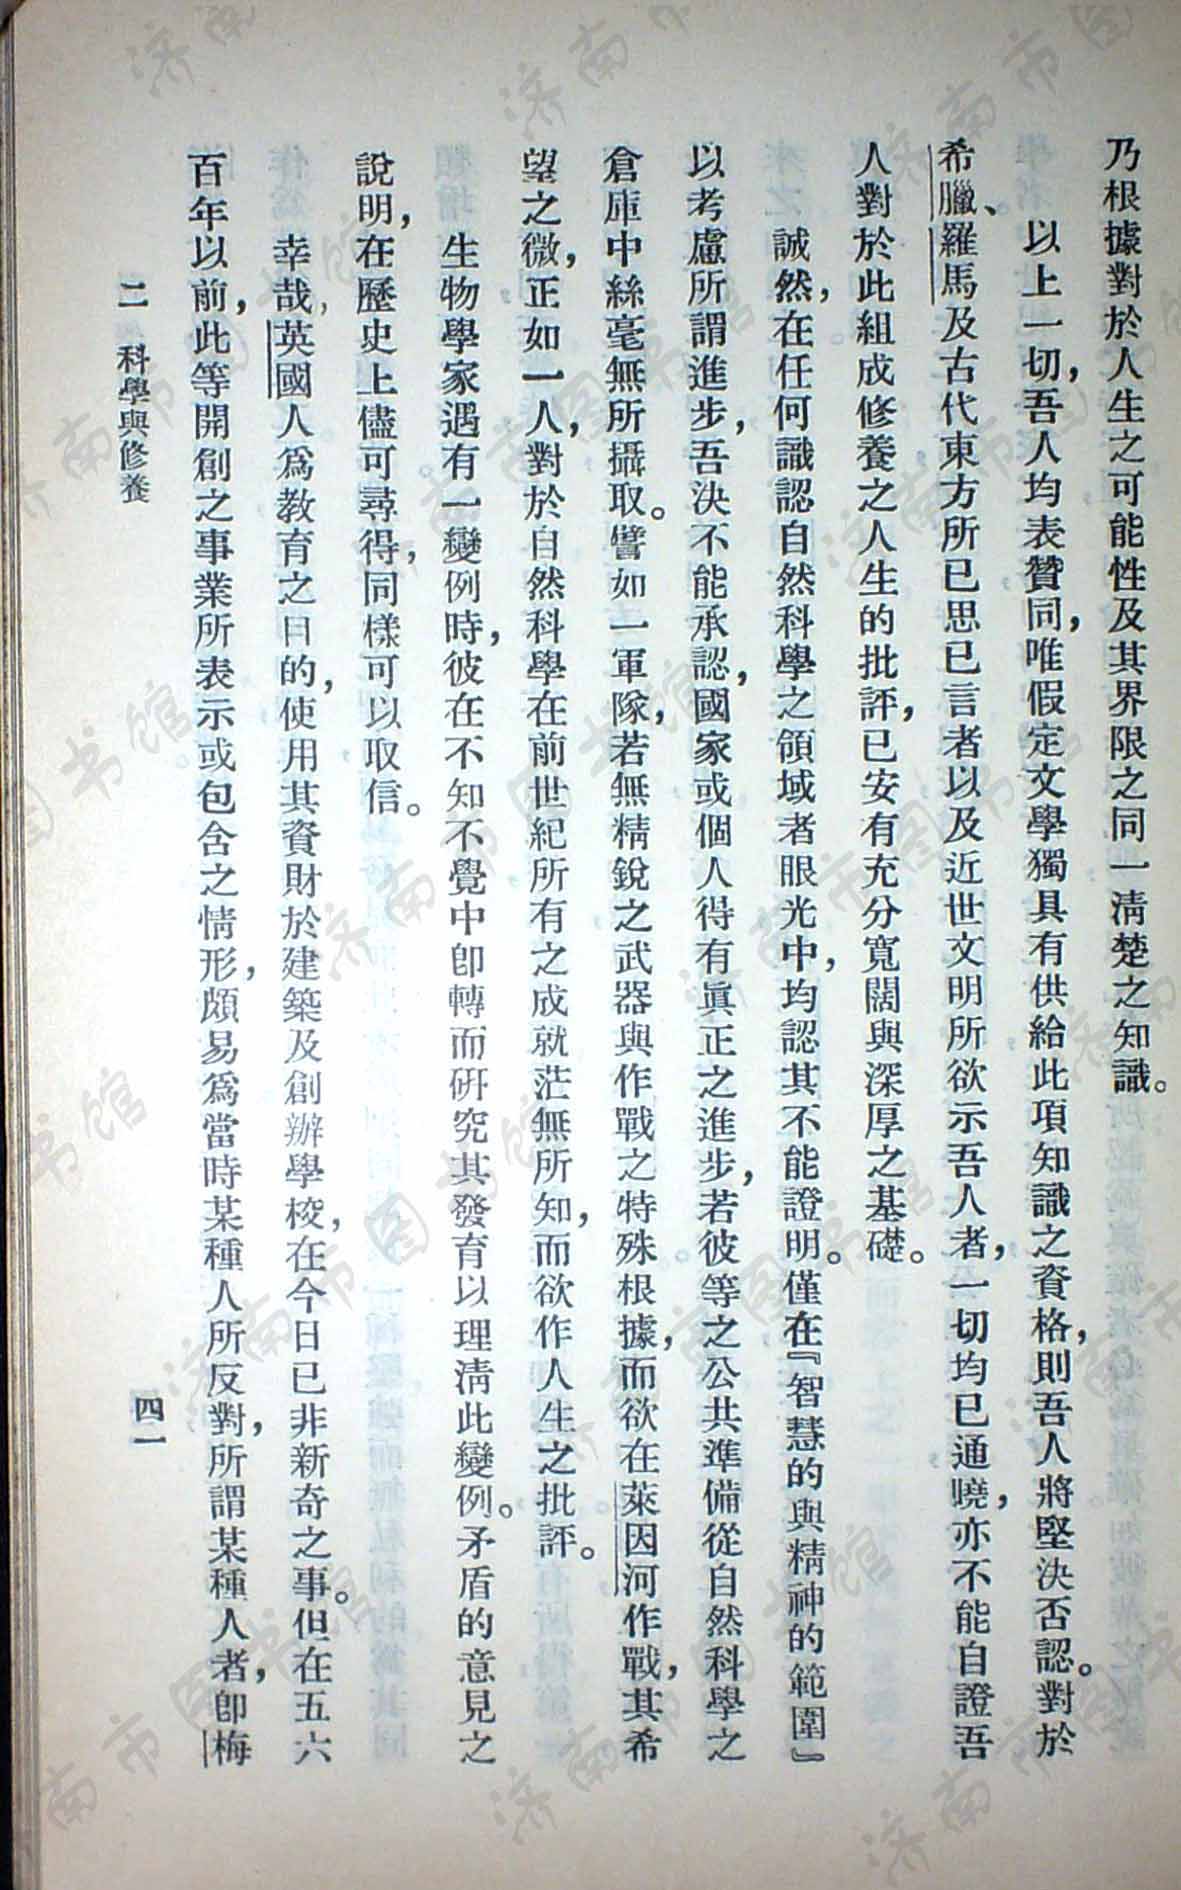 乃根據對於人生之可能性及其界限之同一淸楚之知識。
以上一切，吾人均表贊同，唯假定文學獨具有供給此項知識之資格，則吾人將堅決否認。對於
希臘、羅馬及古代東方所已思已言者以及近世文明所欲示吾人者，一切均已通曉，亦不能自證吾
人對於此組成修養之人生的批評，已安有充分寬闊與深厚之基礎。
誠然，在任何識認自然科學之領域者眼光中，均認其不能證明。僅在『智慧的與精神的範圍』
以考慮所謂進步，吾決不能承認，國家或個人得有眞正之進步，若彼等之公共準備從自然科學之
倉庫中絲毫無所攝取。譬如一軍隊，若無精銳之武器與作戰之特殊根據，而欲在萊因河作戰，其希
望之微，正如一人，對於自然科學在前世紀所有之成就茫無所知，而欲作人生之批評。
生物學家遇有一變例時，彼在不知不覺中卽轉而硏究其發育以理淸此變例。矛盾的意見之
說明，在歷史上儘可尋得，同樣可以取信。
幸哉，英國人爲教育之目的，使用其資財於建築及創辦學校，在今日已非新奇之事。但在五六
百年以前，此等開創之事業所表示或包含之情形，頗易爲當時某種人所反對，所謂某種人者，卽梅
二　科學與修養
四一
济南市图书馆